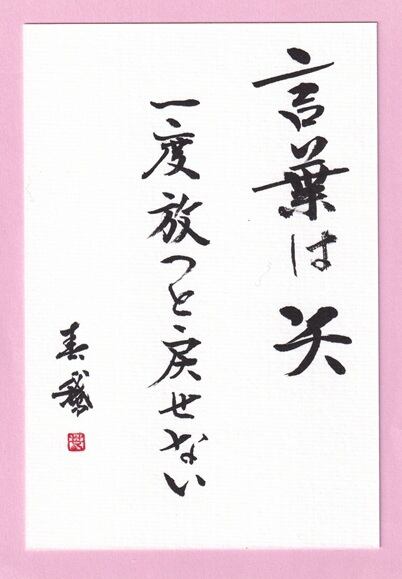 言葉は矢
一度放つと戻せない